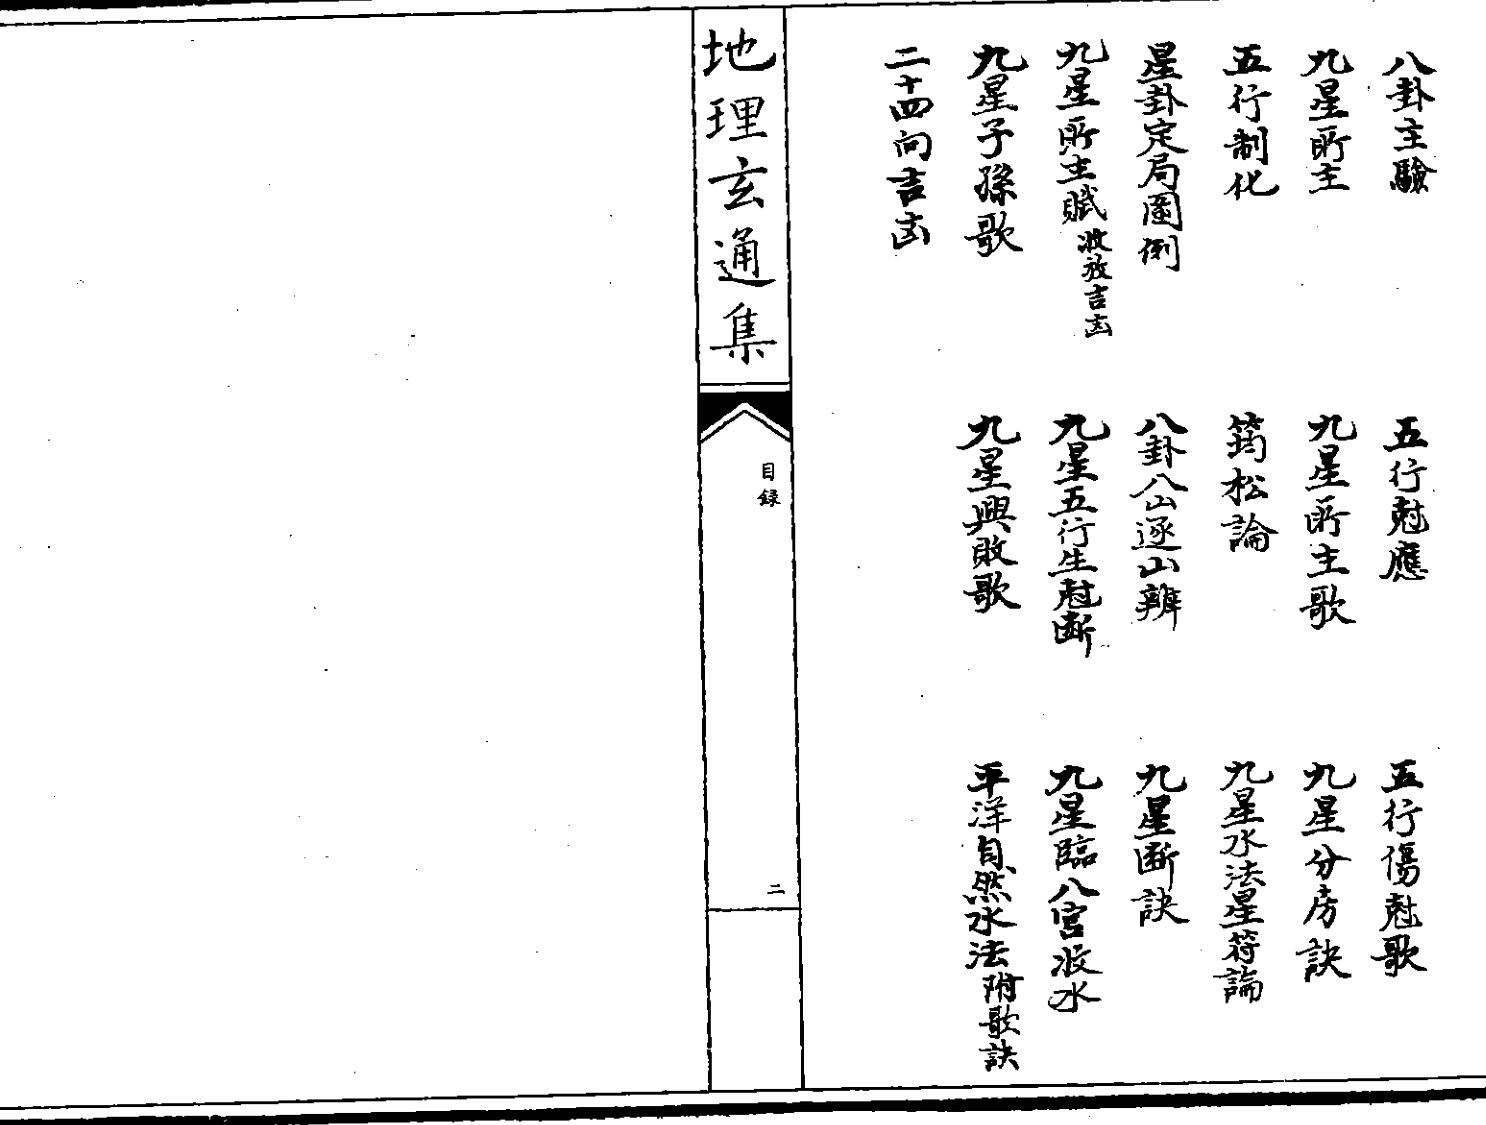 八卦主驗　五行尅應　五行傷尅歌
九星所主　九星所主歌　九星分房訣
五行制化　筠松論　九星水法星符論
星卦定局圖例　八卦八山逐山辨　九星断訣
九星所主賦 收放吉凶　九星五行生尅断　九星臨八宮收水
九星子孫歌　九星興敗歌　平洋自然水法 附歌訣
二十四向吉凶
地理玄通集
目録
二